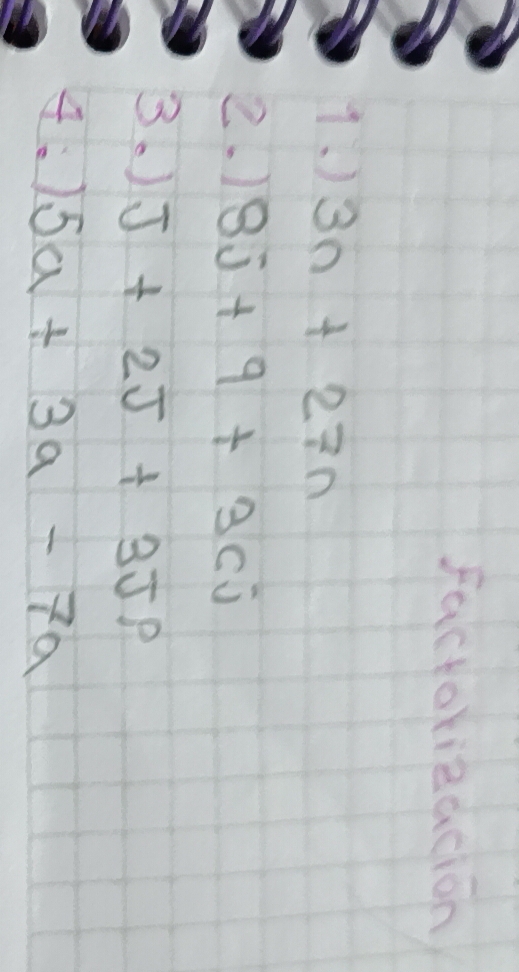 Factorización
1.) 3n + 27n
2.) 8j + 9 + 3cj
3.) J + 2J + 3JP
4.) 5a + 3a - 7a